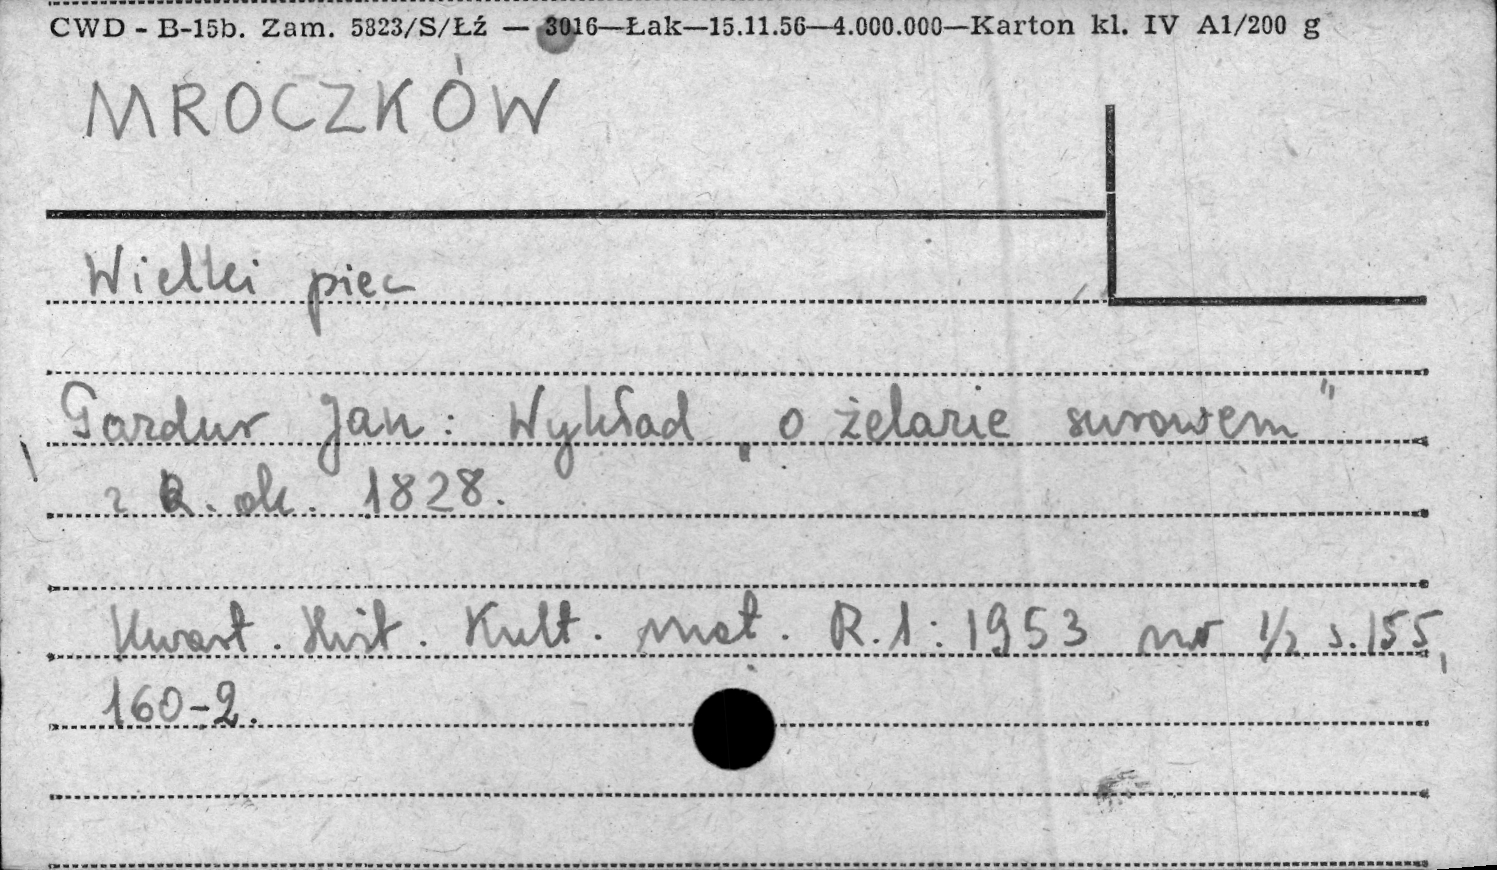 CWD - B-15b. Zam. 5823/S/Łź — 3016—Łak—15.11.56—4.000.000—Karton kl. IV A1/200 g
MROCZKÓW
Wielki piec
Pazdur Jan: Wykład „o żelazie surowem"
z R. ok. 1828.
Kwart. Hist. Kult. mat. R.1: 1953 nr 1/2 s. 155,
160-2.